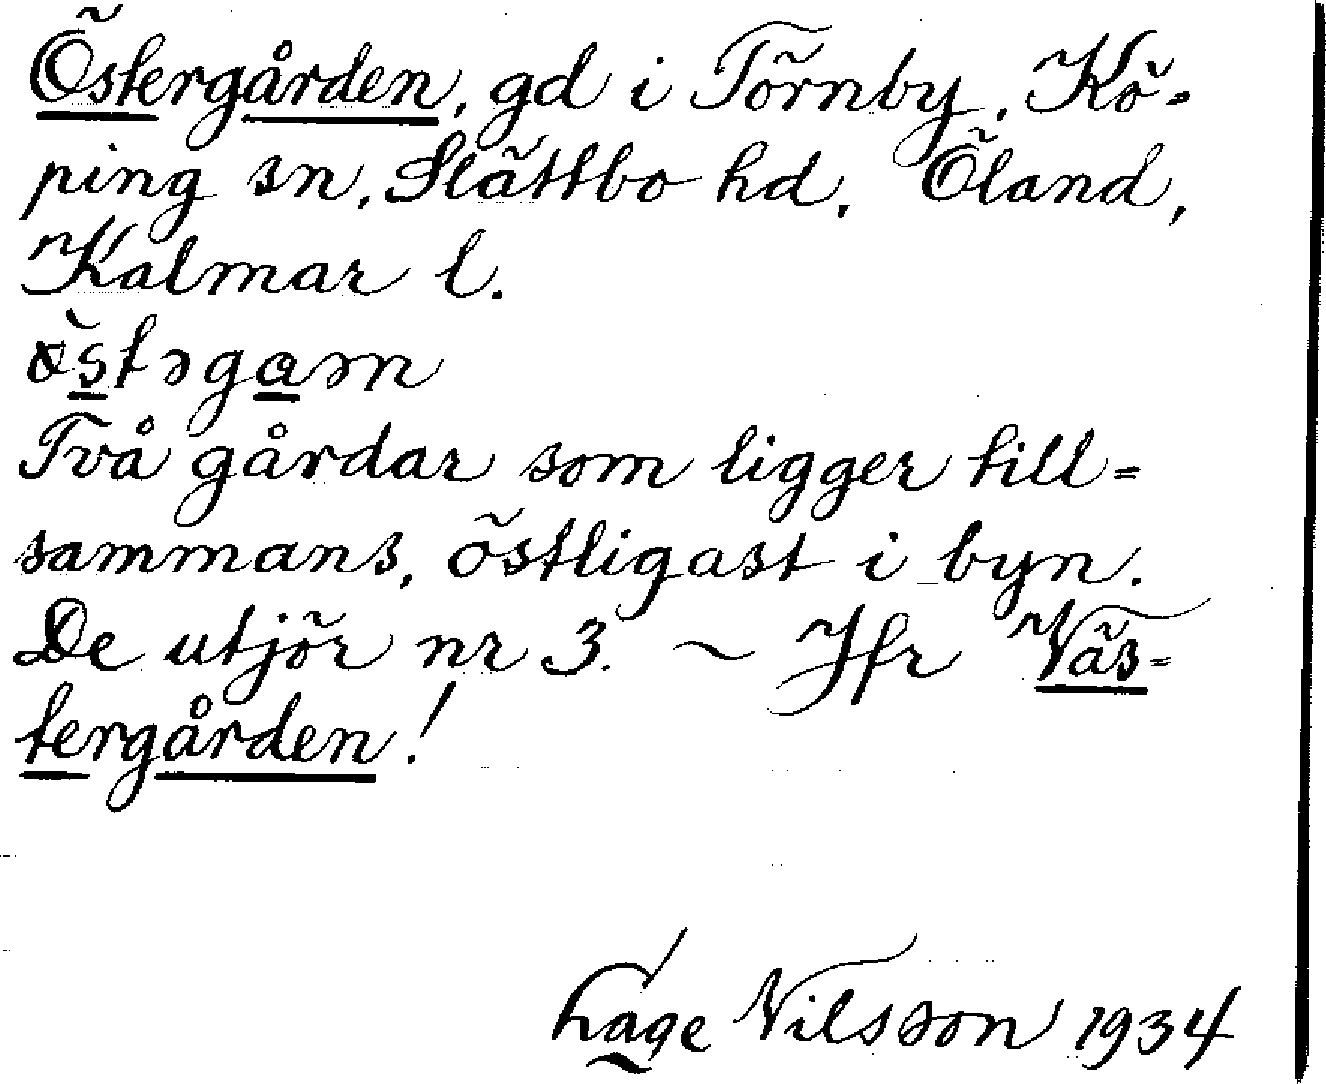 Östergården, gd i Törnby, Kö-
ping sn, Slättbo hd, Öland,
Kalmar l.
östəgaən
Två gårdar som ligger till-
sammans, östligast i byn.
De utjör nr 3. ~ Jfr Väs-
tergården!
Åge Nilsson 1934